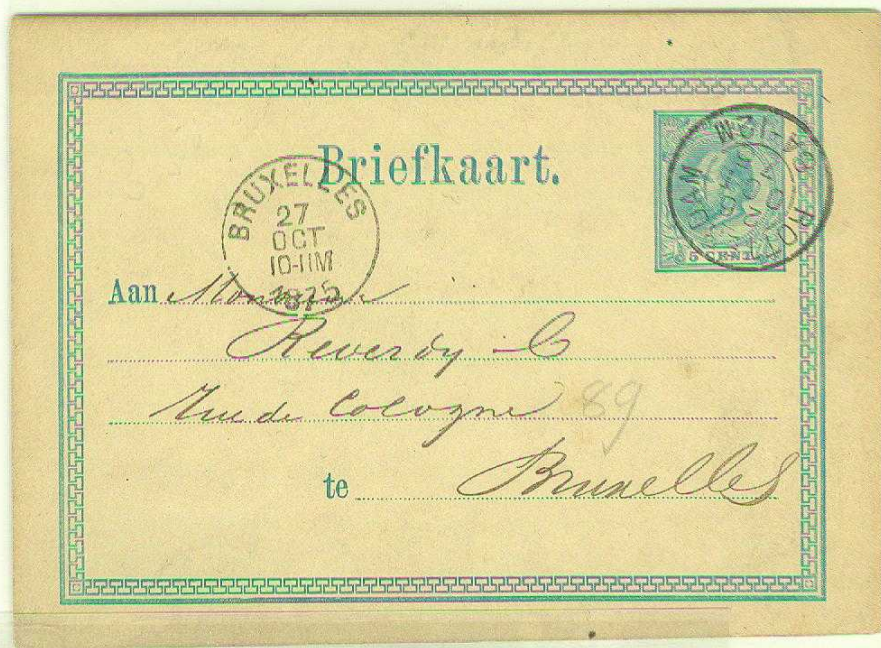 Briefkaart.
BRUXELLES
27
OCT
10-11M
1875
5 CENT.
Aan
Reverdy & C
Rue de Cologne 89
te Bruxelles